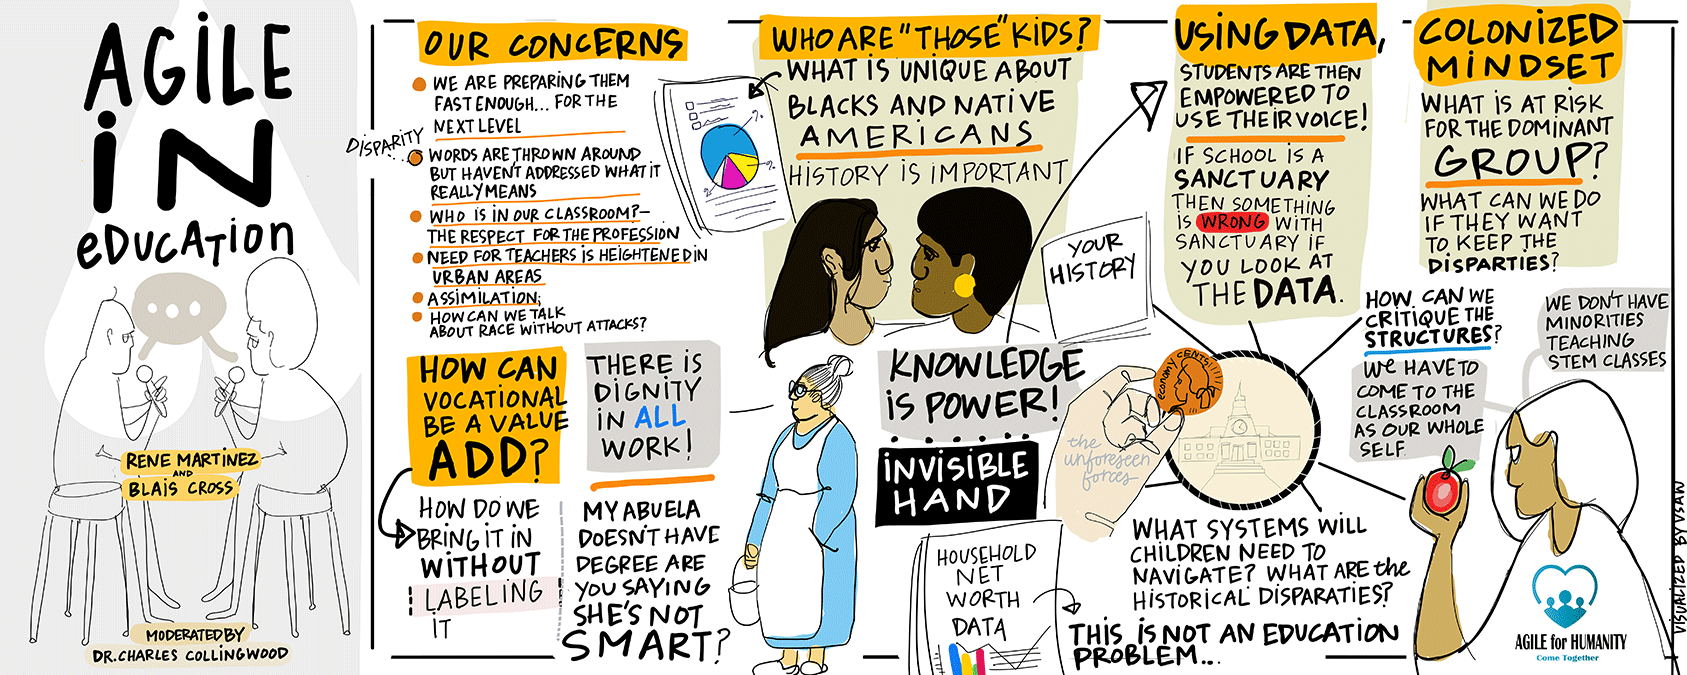 AGILE
IN
eDUCATION
RENE MARTINEZ
AND
BLAIS CROSS
MODERATED BY
DR. CHARLES COLLINGWOOD
OUR CONCERNS
WE ARE PREPARING THEM
FAST ENOUGH... FOR THE
NEXT LEVEL
DISPARITY...
WORDS ARE THROWN AROUND
BUT HAVEN'T ADDRESSED WHAT IT
REALLY MEANS
WHO IS IN OUR CLASSROOM?-
THE RESPECT FOR THE PROFESSION
NEED FOR TEACHERS IS HEIGHTENED IN
URBAN AREAS
ASSIMILATION;
HOW CAN WE TALK
ABOUT RACE WITHOUT ATTACKS?
HOW CAN
VOCATIONAL
BE A VALUE
ADD?
HOW DO WE
BRING IT IN
WITHOUT
LABELING
IT
THERE IS
DIGNITY
IN ALL
WORK!
MY ABUELA
DOESN'T HAVE
DEGREE ARE
YOU SAYING
SHE'S NOT
SMART?
WHO ARE "THOSE" KIDS?
WHAT IS UNIQUE ABOUT
BLACKS AND NATIVE
AMERICANS
HISTORY IS IMPORTANT
YOUR
HISTORY
KNOWLEDGE
IS POWER!
INVISIBLE
HAND
the
unforeseen
forces
economy CENTS!
HOUSEHOLD
NET
WORTH
DATA
WHAT SYSTEMS WILL
CHILDREN NEED TO
NAVIGATE? WHAT ARE the
HISTORICAL DISPARATIES?
THIS IS NOT AN EDUCATION
PROBLEM...
USING DATA,
STUDENTS ARE THEN
EMPOWERED TO
USE THEIR VOICE!
IF SCHOOL IS A
SANCTUARY
THEN SOMETHING
IS WRONG WITH
SANCTUARY IF
YOU LOOK AT
THE DATA.
COLONIZED
MINDSET
WHAT IS AT RISK
FOR THE DOMINANT
GROUP?
WHAT CAN WE DO
IF THEY WANT
TO KEEP THE
DISPARTIES?
HOW CAN WE
CRITIQUE THE
STRUCTURES?
WE HAVE TO
COME TO THE
CLASSROOM
AS OUR WHOLE
SELF
WE DON'T HAVE
MINORITIES
TEACHING
STEM CLASSES
AGILE for HUMANITY
Come Together
VISUALIZED BY VSAW